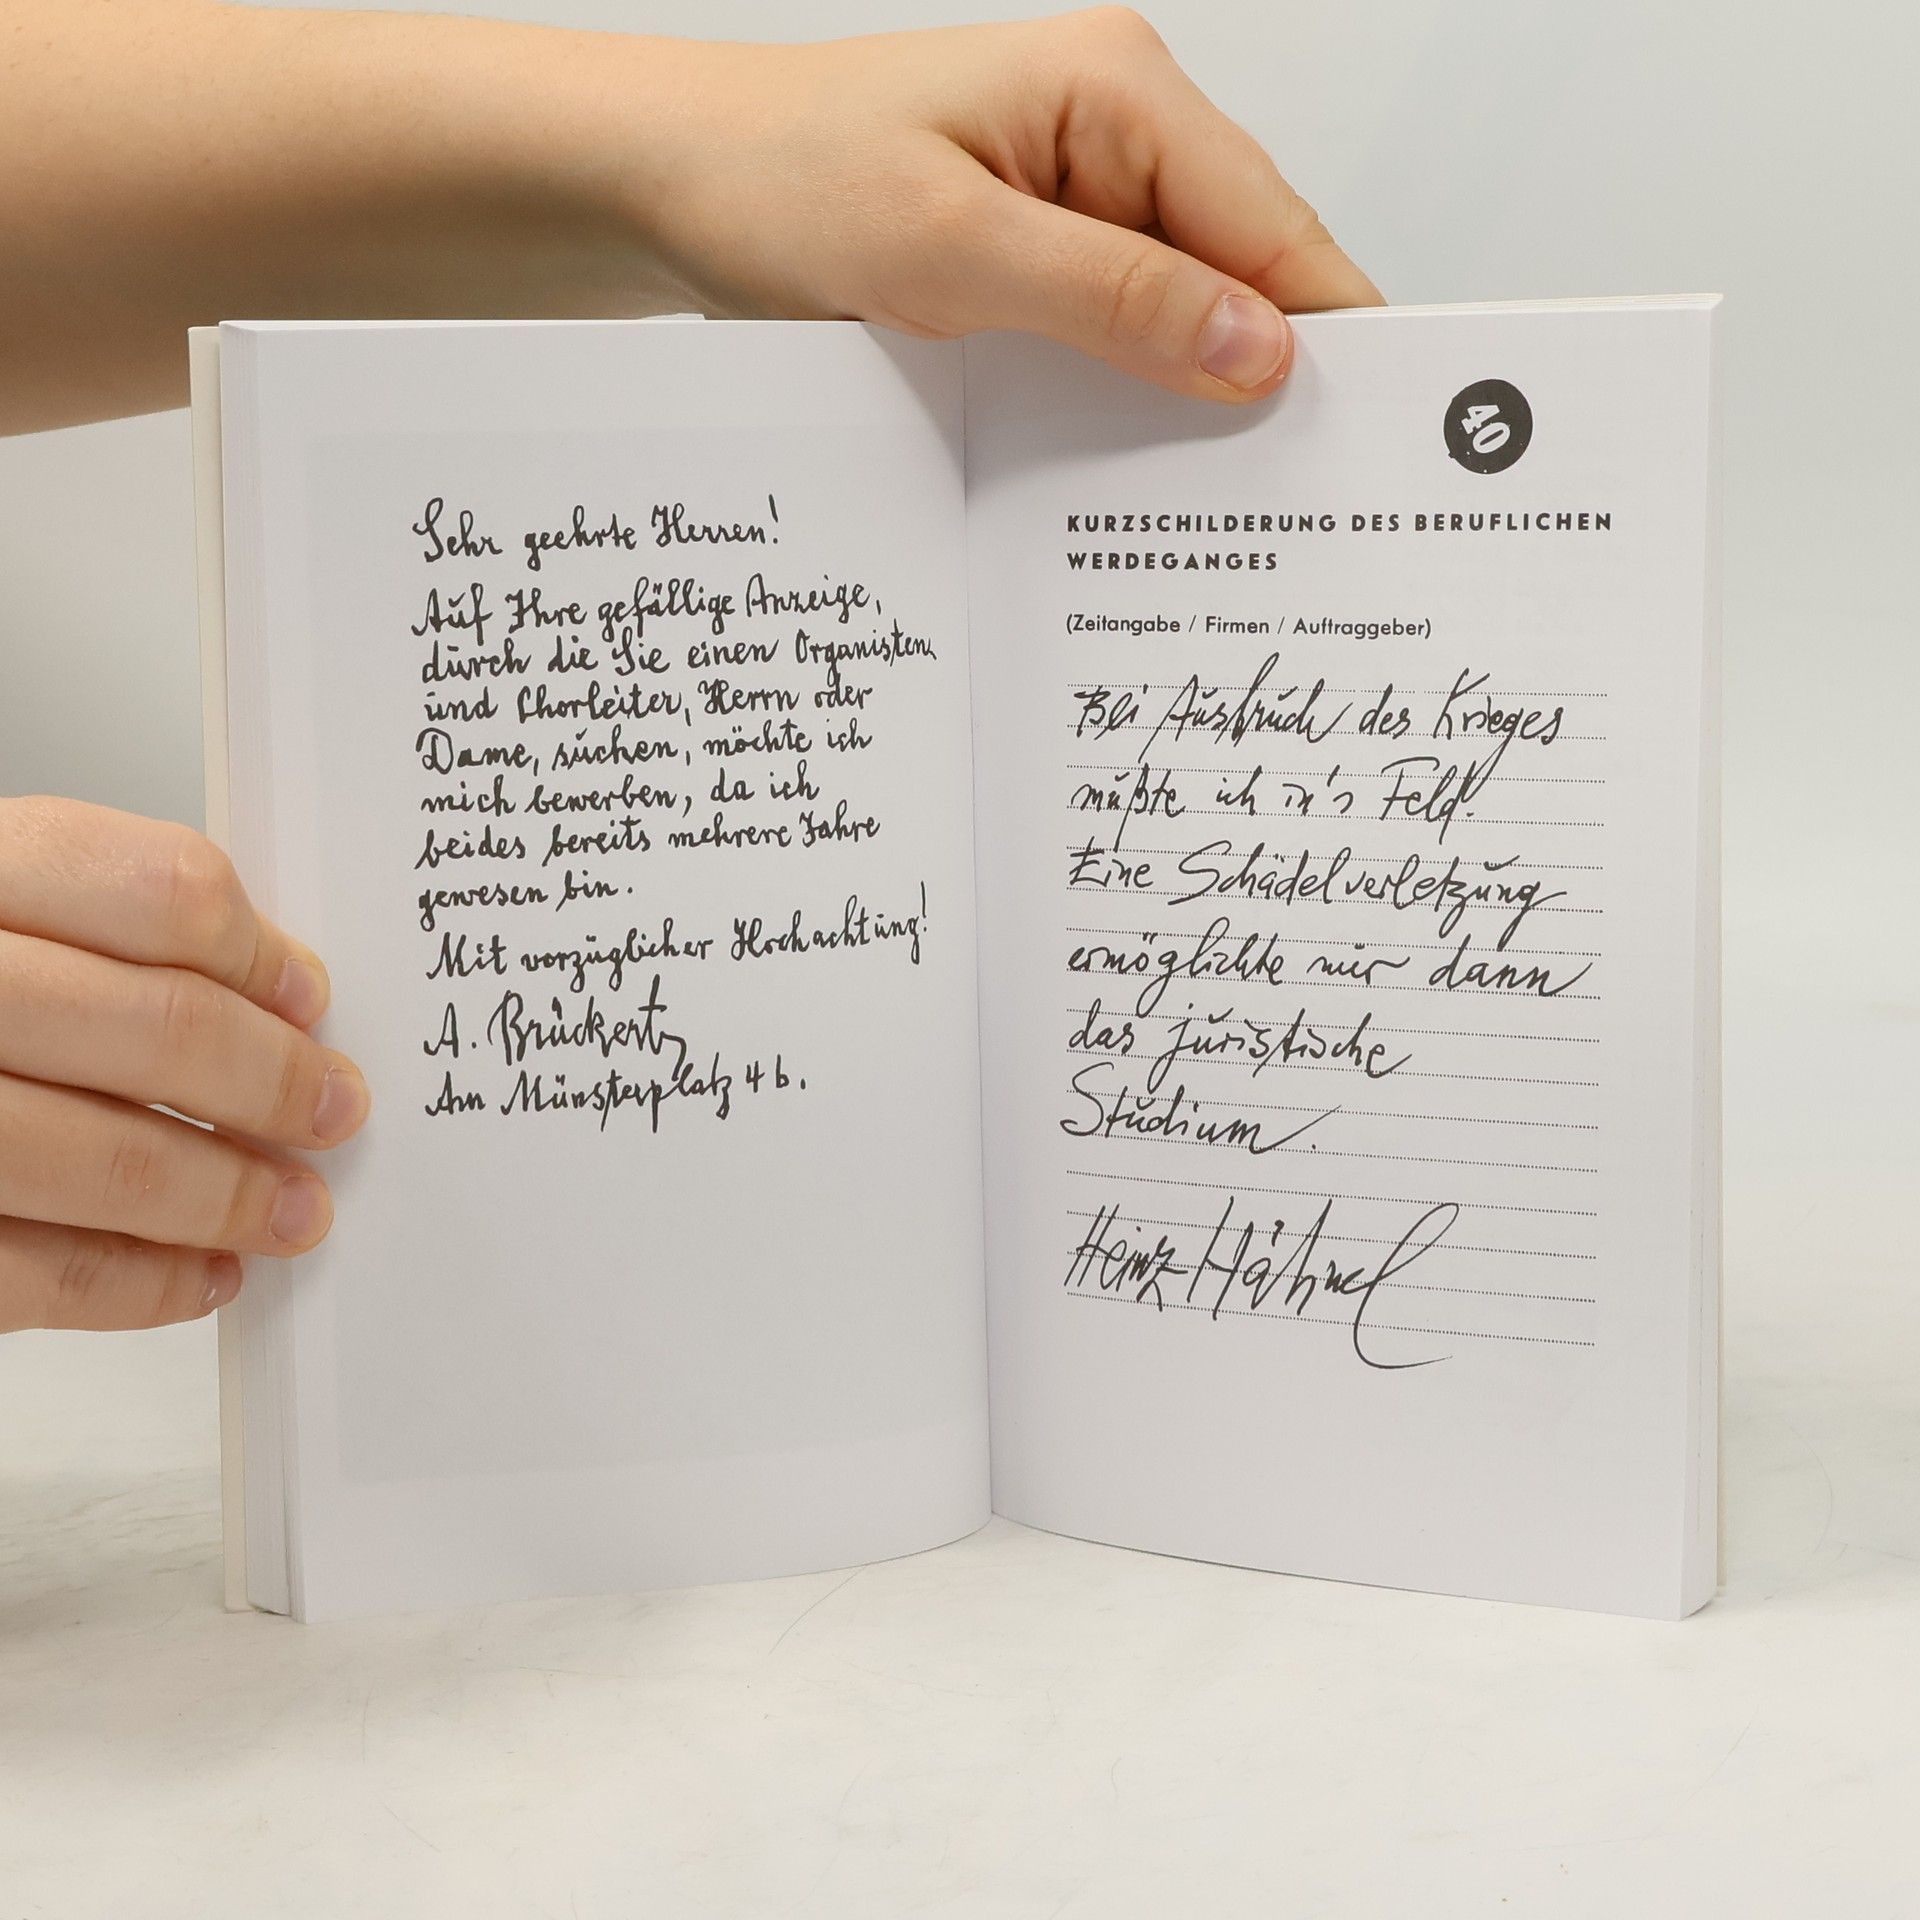 Sehr geehrte Herren!
Auf Ihre gefällige Anzeige,
durch die Sie einen Organisten
und Chorleiter, Herrn oder
Dame, suchen, möchte ich
mich bewerben, da ich
beides bereits mehrere Jahre
gewesen bin.
Mit vorzüglicher Hochachtung!
A. Brückert
Am Münsterplatz 4 b.
40
KURZSCHILDERUNG DES BERUFLICHEN
WERDEGANGES
(Zeitangabe / Firmen / Auftraggeber)
Bei Ausbruch des Krieges
mußte ich in's Feld.
Eine Schädelverletzung
ermöglichte mir dann
das juristische
Studium.
Heinz Hähnel